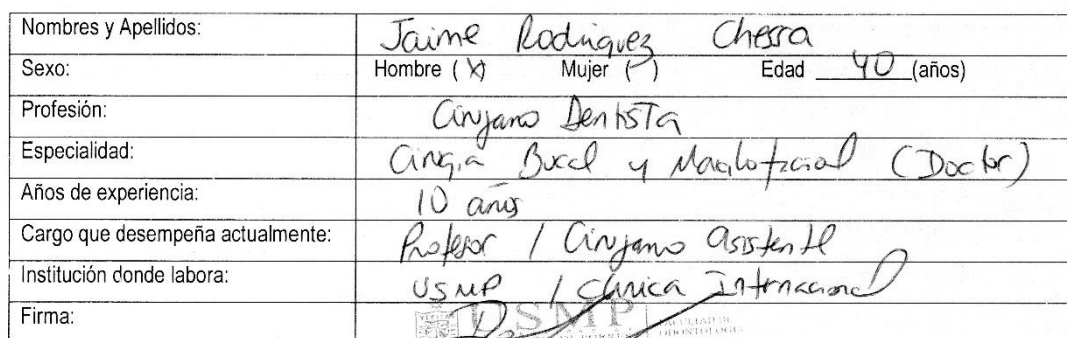 Nombres y Apellidos: Jaime Rodriguez Chessa
Sexo: Hombre (X) Mujer ( ) Edad 40 (años)
Profesión: Cirujano Dentista
Especialidad: Cirugia Bucal y Maxilofacial (Doctor)
Años de experiencia: 10 años
Cargo que desempeña actualmente: Profesor / Cirujano asistente
Institución donde labora: USMP / Clinica Internacional
Firma: USMP FACULTAD DE ODONTOLOGÍA